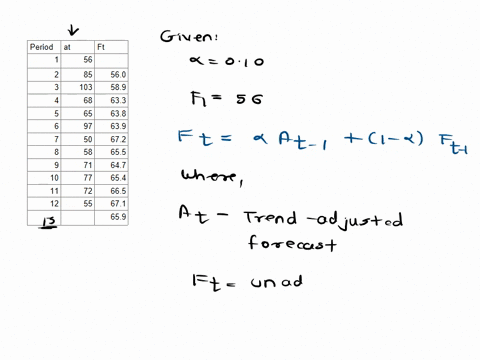 Period at Ft
1 56
2 85 56.0
3 103 58.9
4 68 63.3
5 65 63.8
6 97 63.9
7 50 67.2
8 58 65.5
9 71 64.7
10 77 65.4
11 72 66.5
12 55 67.1
13 65.9
Given:
α = 0.10
F1 = 56
Ft = α At-1 + (1-α) Ft-1
where,
At - Trend-adjusted
forecast
Ft = unad